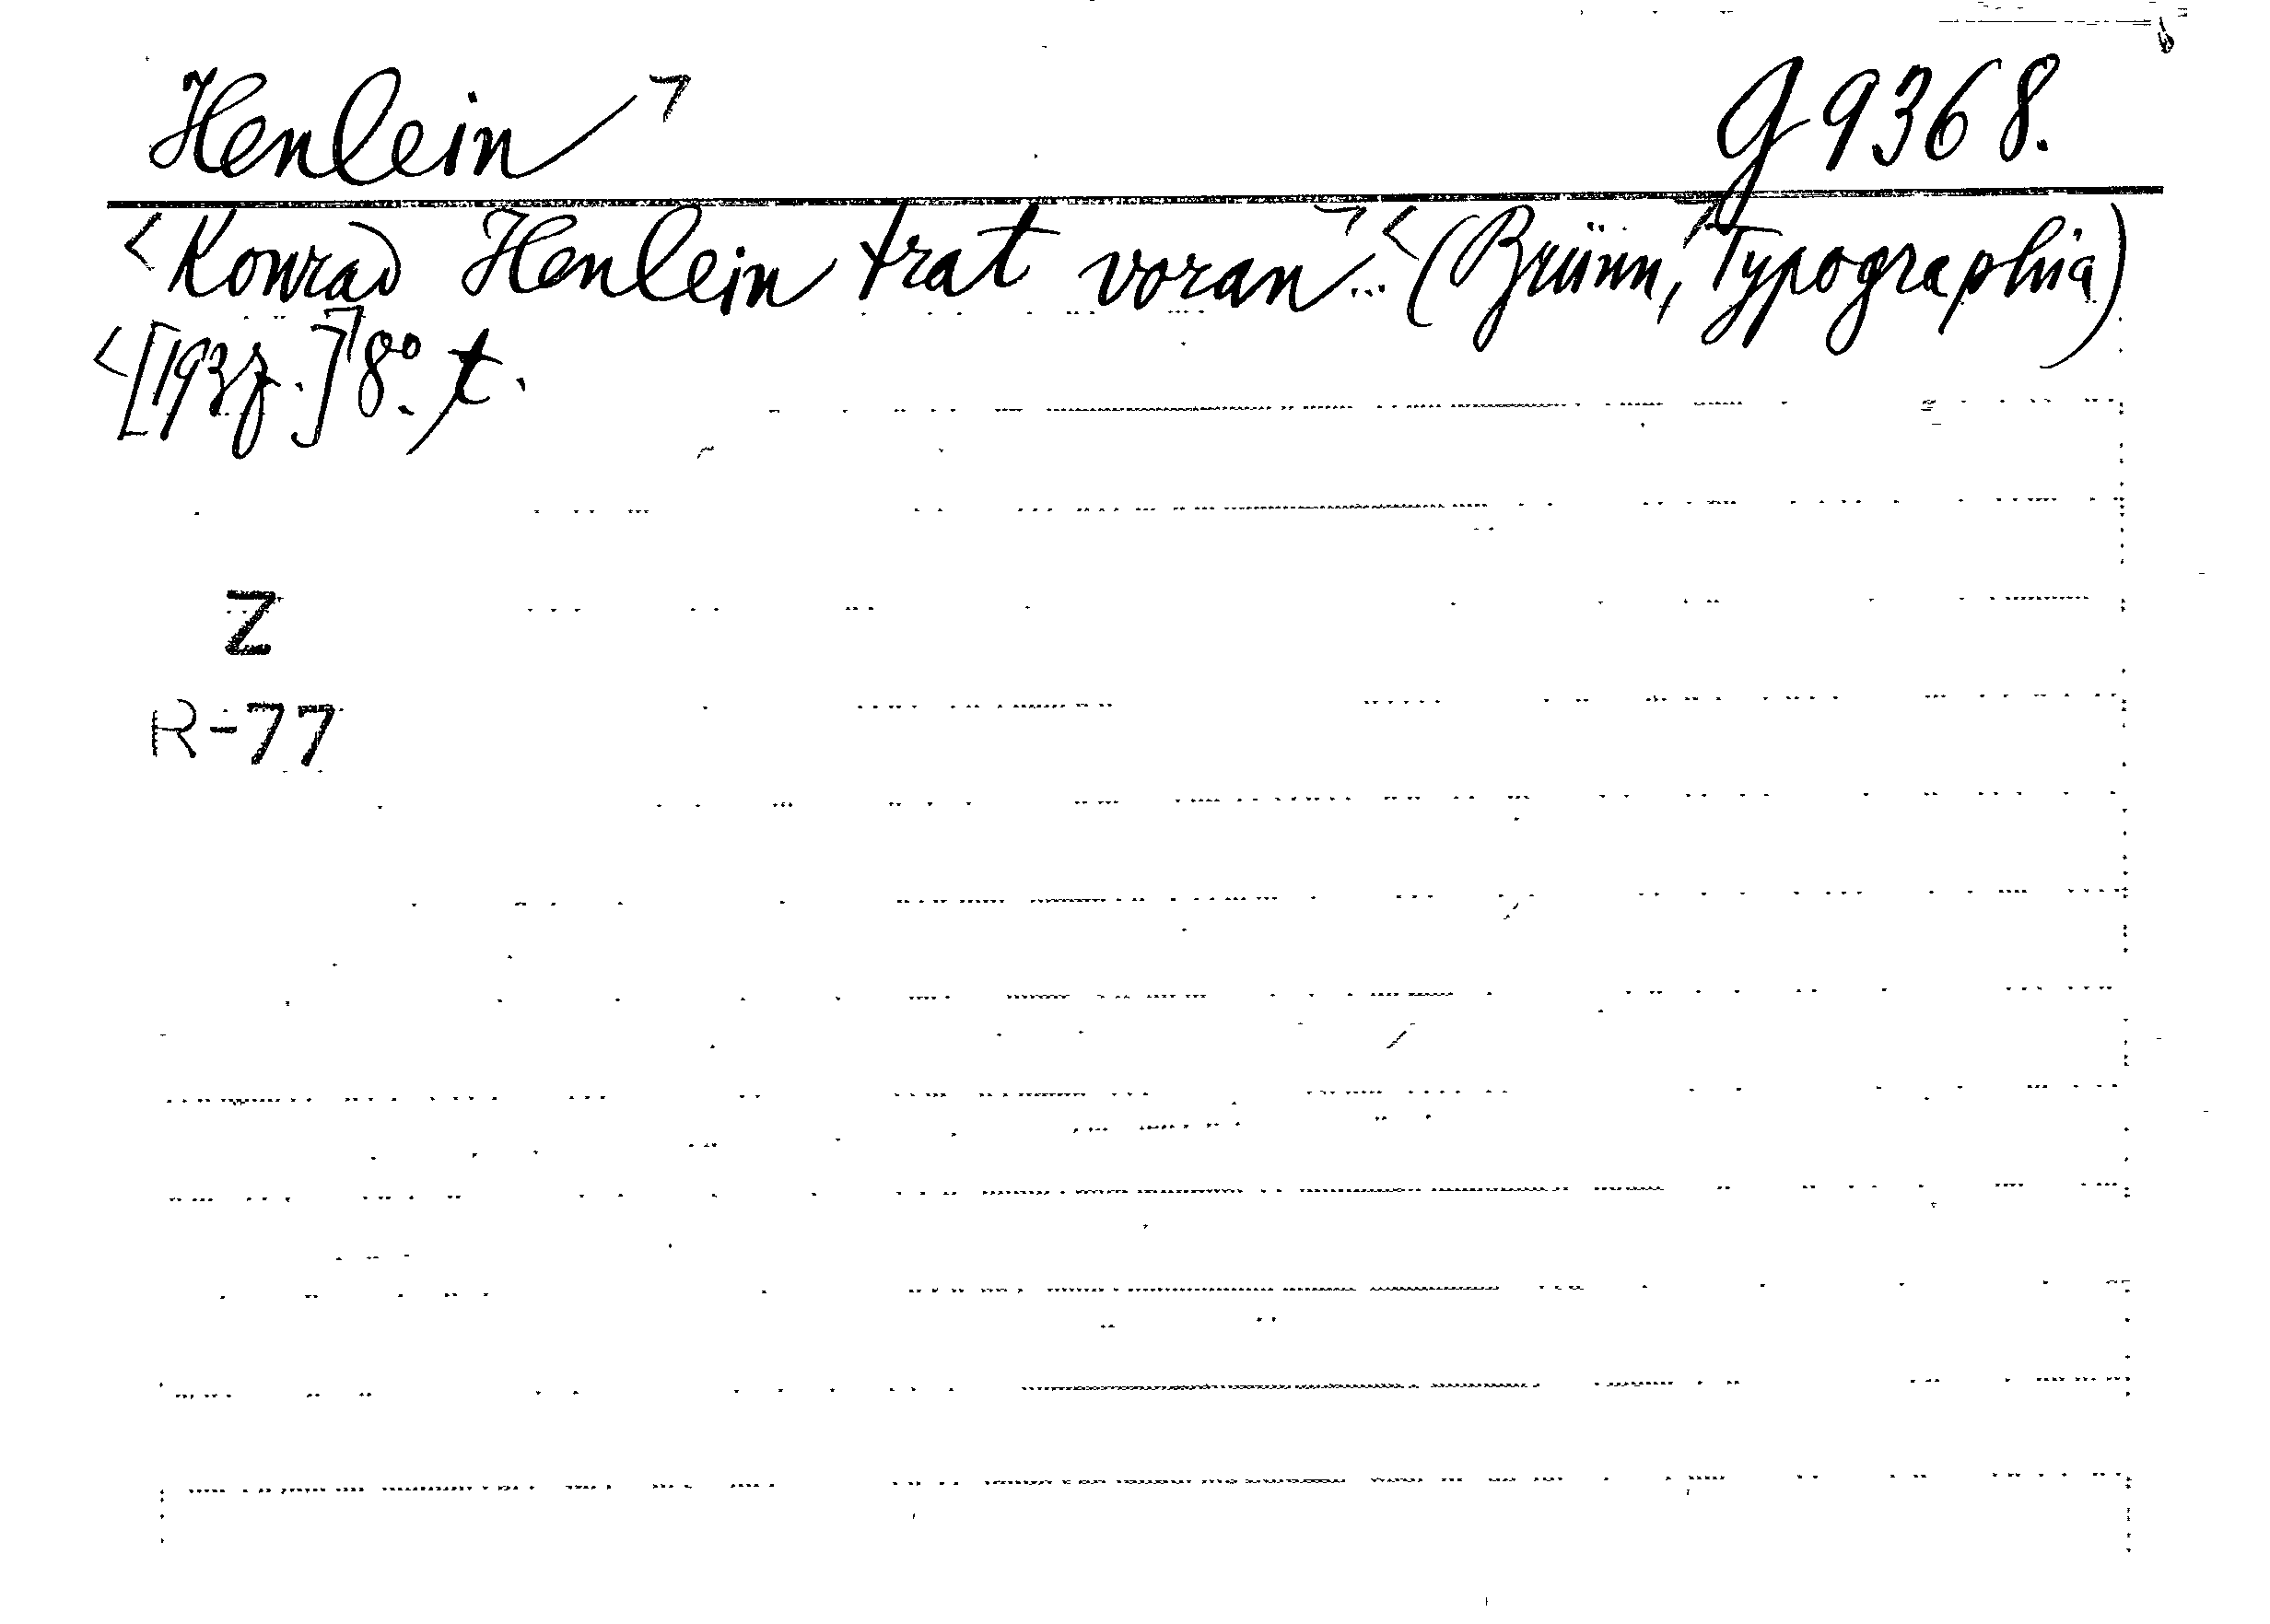 Henlein G 9368.
Konrad Henlein trat voran... (Brünn, Typographia)
[1937.] 8°. t.
Z
R-77